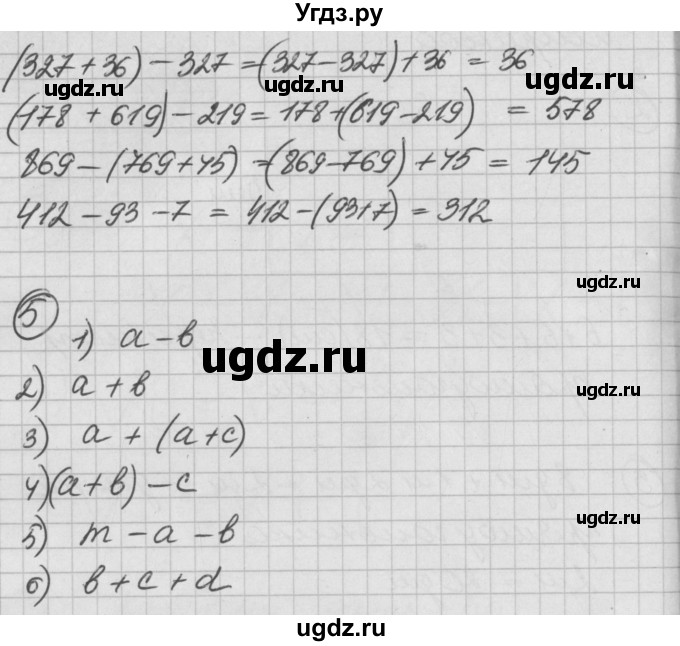 Угдз.ру
(327 + 36) - 327 = (327 - 327) + 36 = 36
ugdz.ru ugdz.ru
(178 + 619) - 219 = 178 + (619 - 219) = 578
869 - (769 + 45) = (869 - 769) + 45 = 145
412 - 93 - 7 = 412 - (93 + 7) = 312
ugdz.ru
5
1) a - b
ugdz.ru
2) a + b
ugdz.ru
3) a + (a + c)
4) (a + b) - c
ugdz.ru ugdz.ru
5) m - a - b
6) b + c + d
ugdz.ru
ugdz.ru